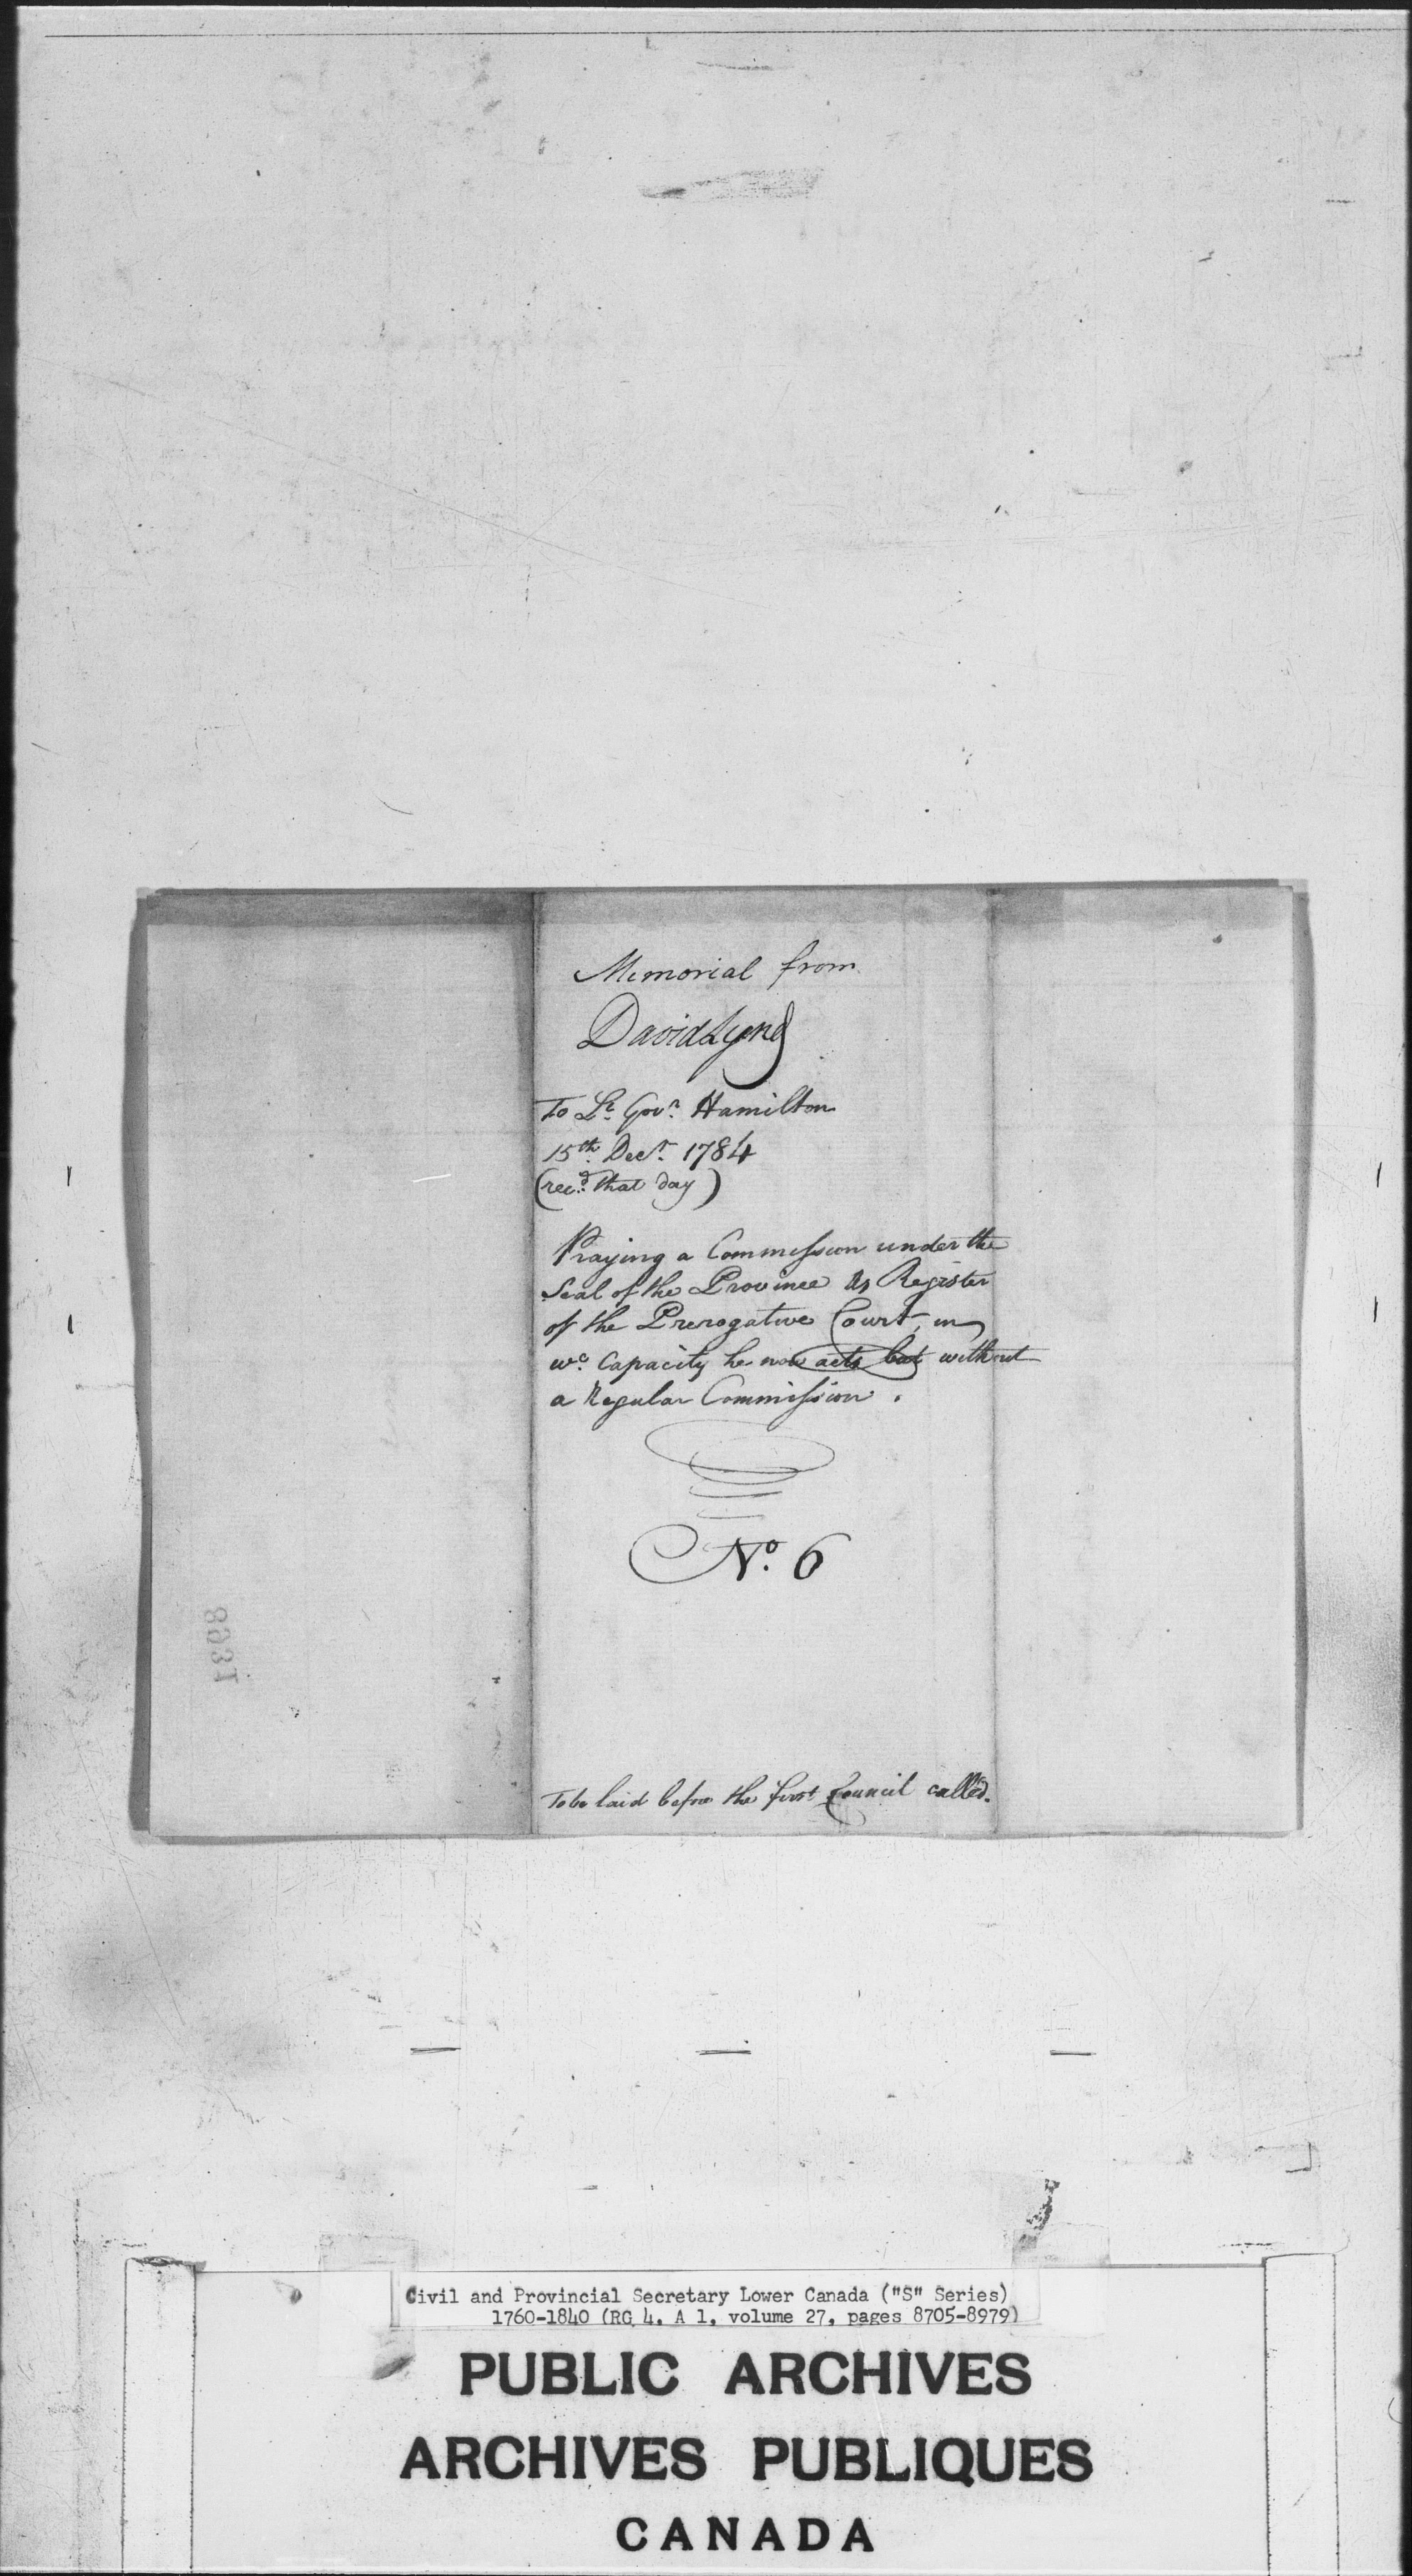 Memorial from
David Lynd
To Lt. Govr. Hamilton
15th. Decr. 1784
(recd. that day)
Praying a Commission under the
Seal of the Province as Register
of the Prerogative Court, in
wc. Capacity he now acts but without
a Regular Commission.
No. 6
8931
To be laid before the first Council called.
Civil and Provincial Secretary Lower Canada ("S" Series)
1760-1840 (RG 4, A 1, volume 27, pages 8705-8979)
PUBLIC ARCHIVES
ARCHIVES PUBLIQUES
CANADA